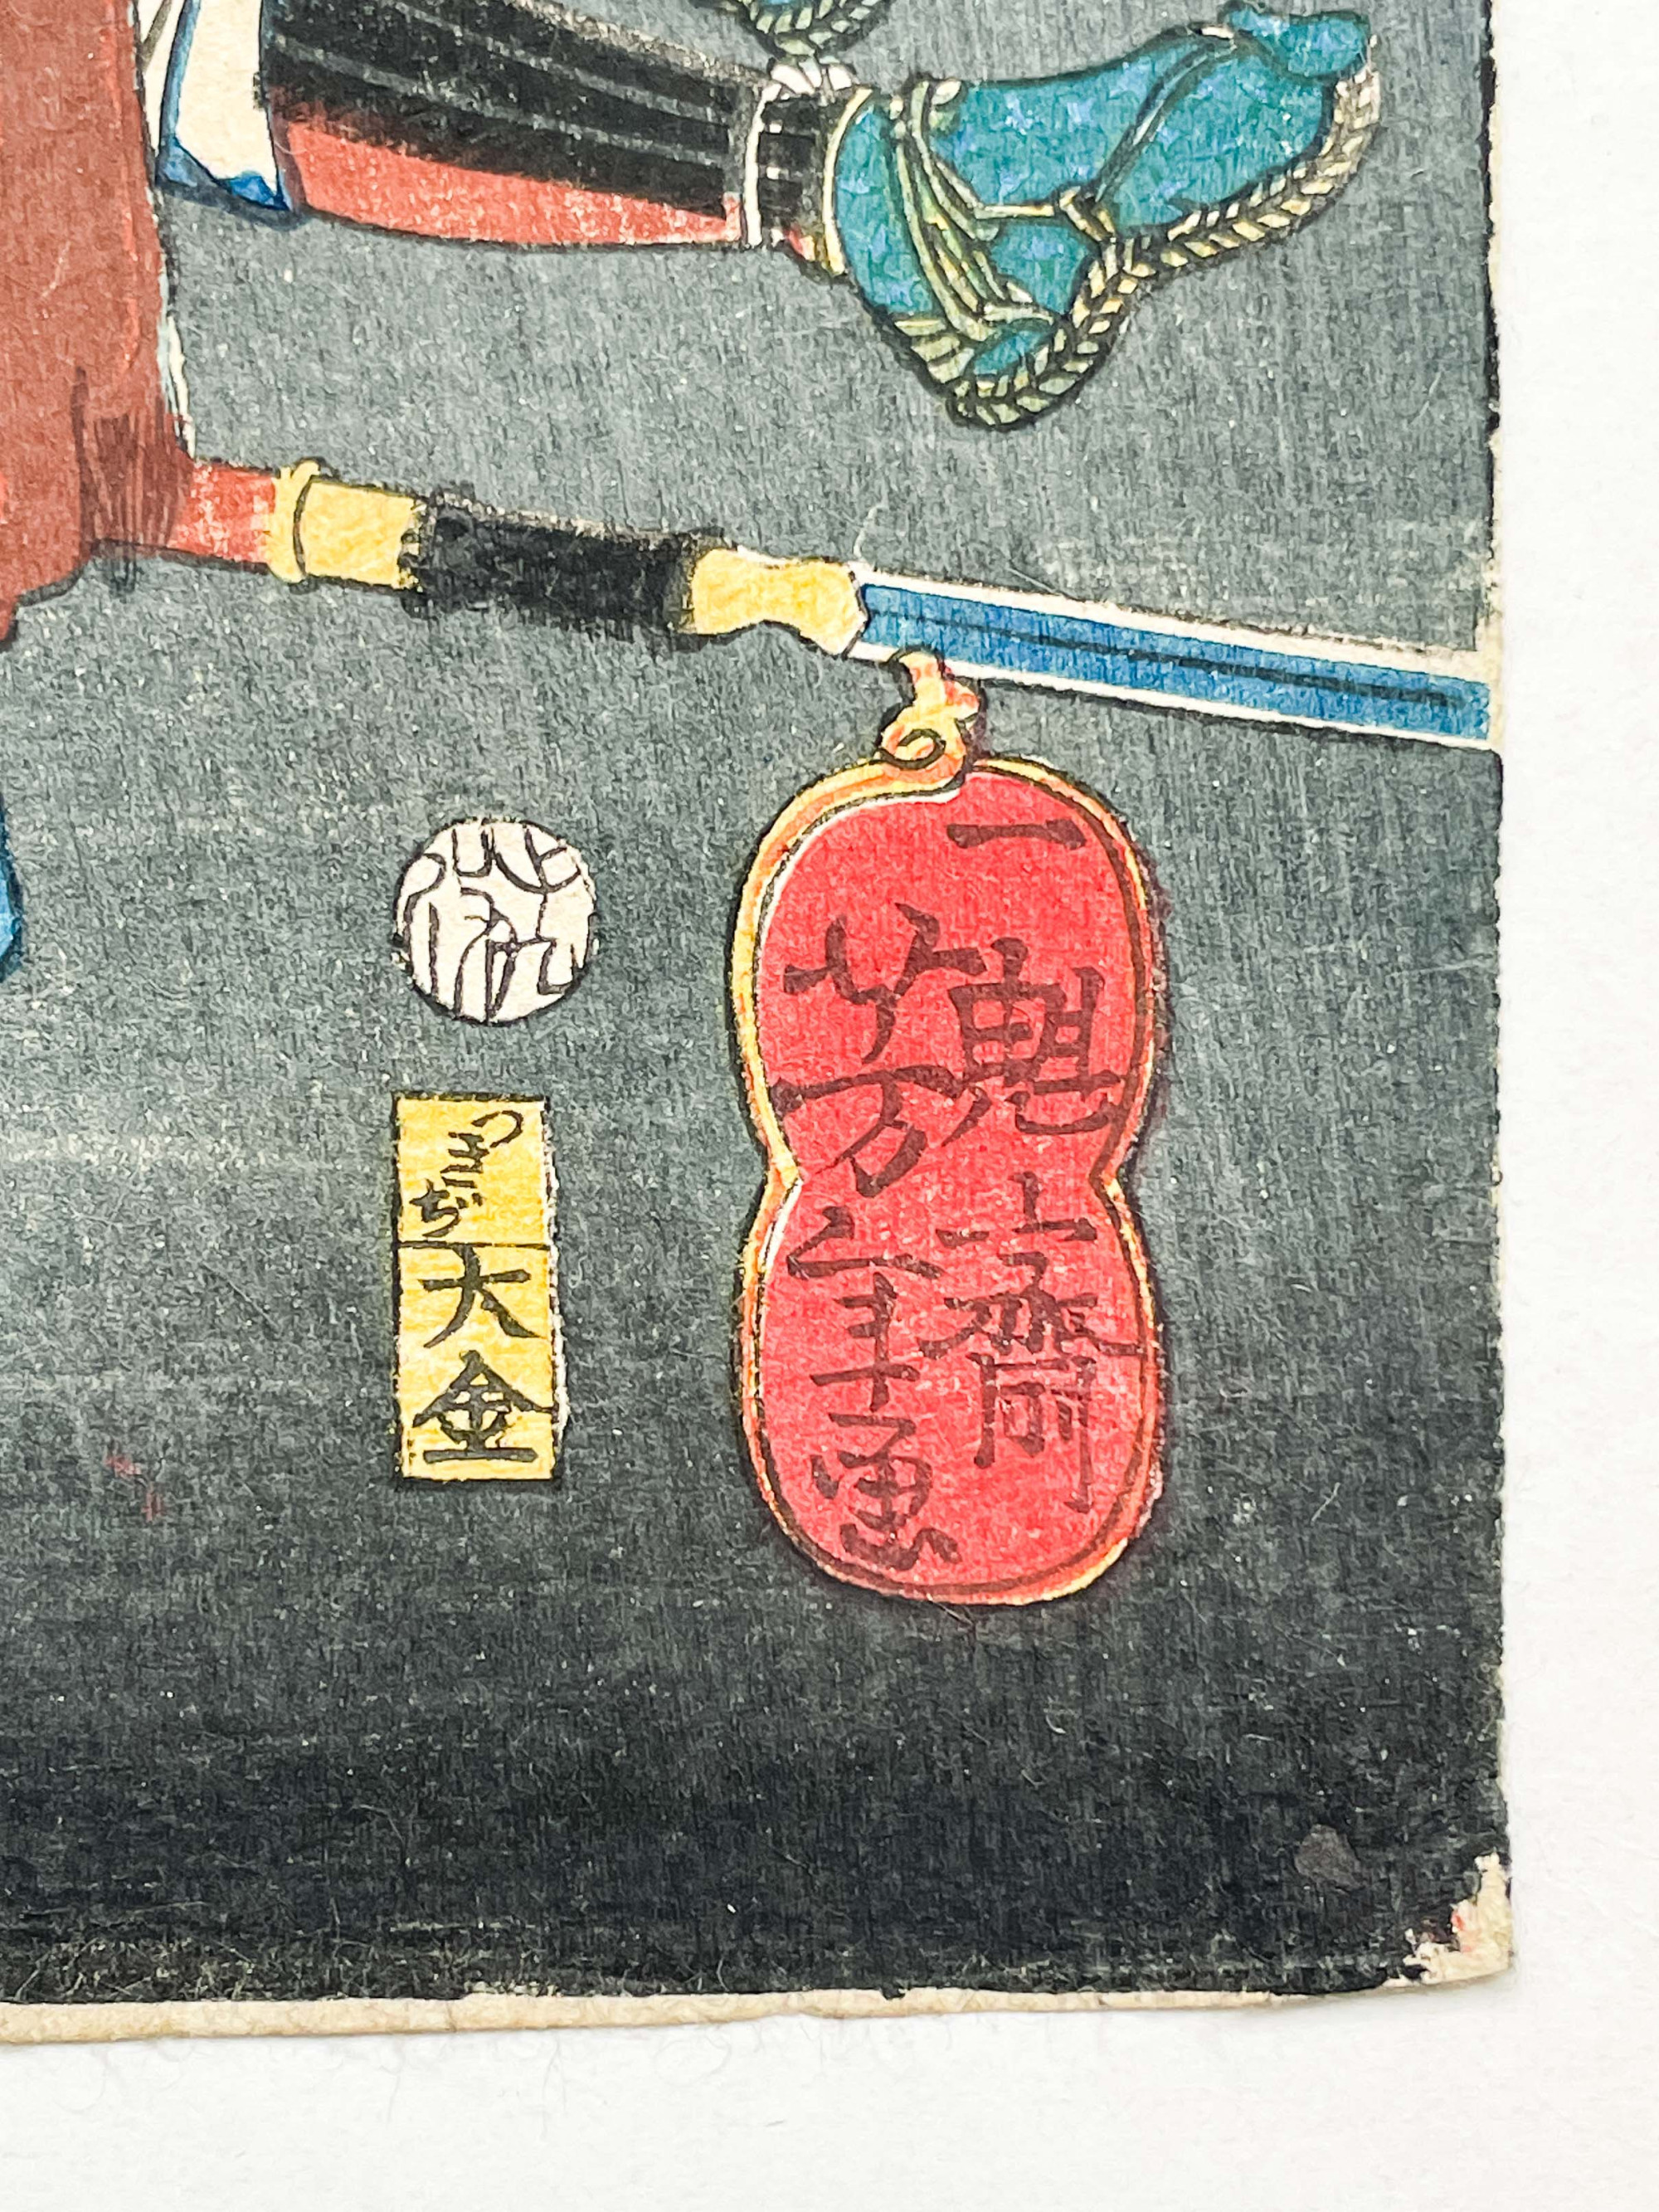 一魁齋
芳年画
つきぢ
大金